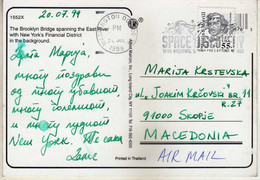 20.07.99
1652X
The Brooklyn Bridge spanning the East River
with New York's Financial District
in the background.
PM
1999
Драга Марија,
многу поздрави
од многу убавиот,
многу големиот,
и многу лудиот
Нем Јорк. Те сака
MARIJA KRSTEVSKA
UL. "JOAKIM KRČOVSKI" БР. 11
К. 27
91000 SKOPJE
MACEDONIA
AIR MAIL
Printed in Thailand